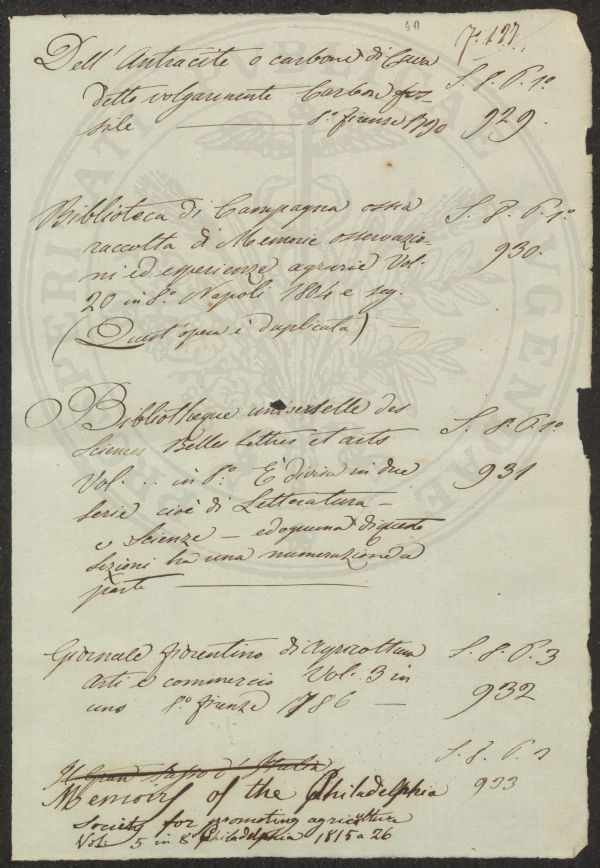 40
7.127
Dell' Antracite o carbone di Cava S. 8. P. 1º
detto volgarmente Carbon fos- 929.
sile — 8º firenze 1790
Biblioteca di Campagna ossia S. 8. P. 1º
raccolta di Memorie osservazio- 930.
ni ed esperienze agrarie Vol.
20 in 8º Napoli 1804 e seg.
(Quest' opera è duplicata) —
Bibliotheque universelle des S. 8. P. 1º
Sciences Belles lettres et arts 931
Vol. .. in 8º E' divisa in due
serie cioè di Letteratura —
e Scienze — ed ognuna di queste
sezioni ha una numerazione a
parte —
Giornale fiorentino di Agricoltura S. 8. P. 3
arti e commercio Vol. 3 in 932
uno 8º firenze 1786 —
Il Gran Sasso d'Italia S. 8. P.
Memoirs of the Philadelphia 933
Society for promoting agriculture
Vol. 5 in 8º Philadelphia 1815 a 26
PROSPERITATI PUBLICAE AUGENDAE